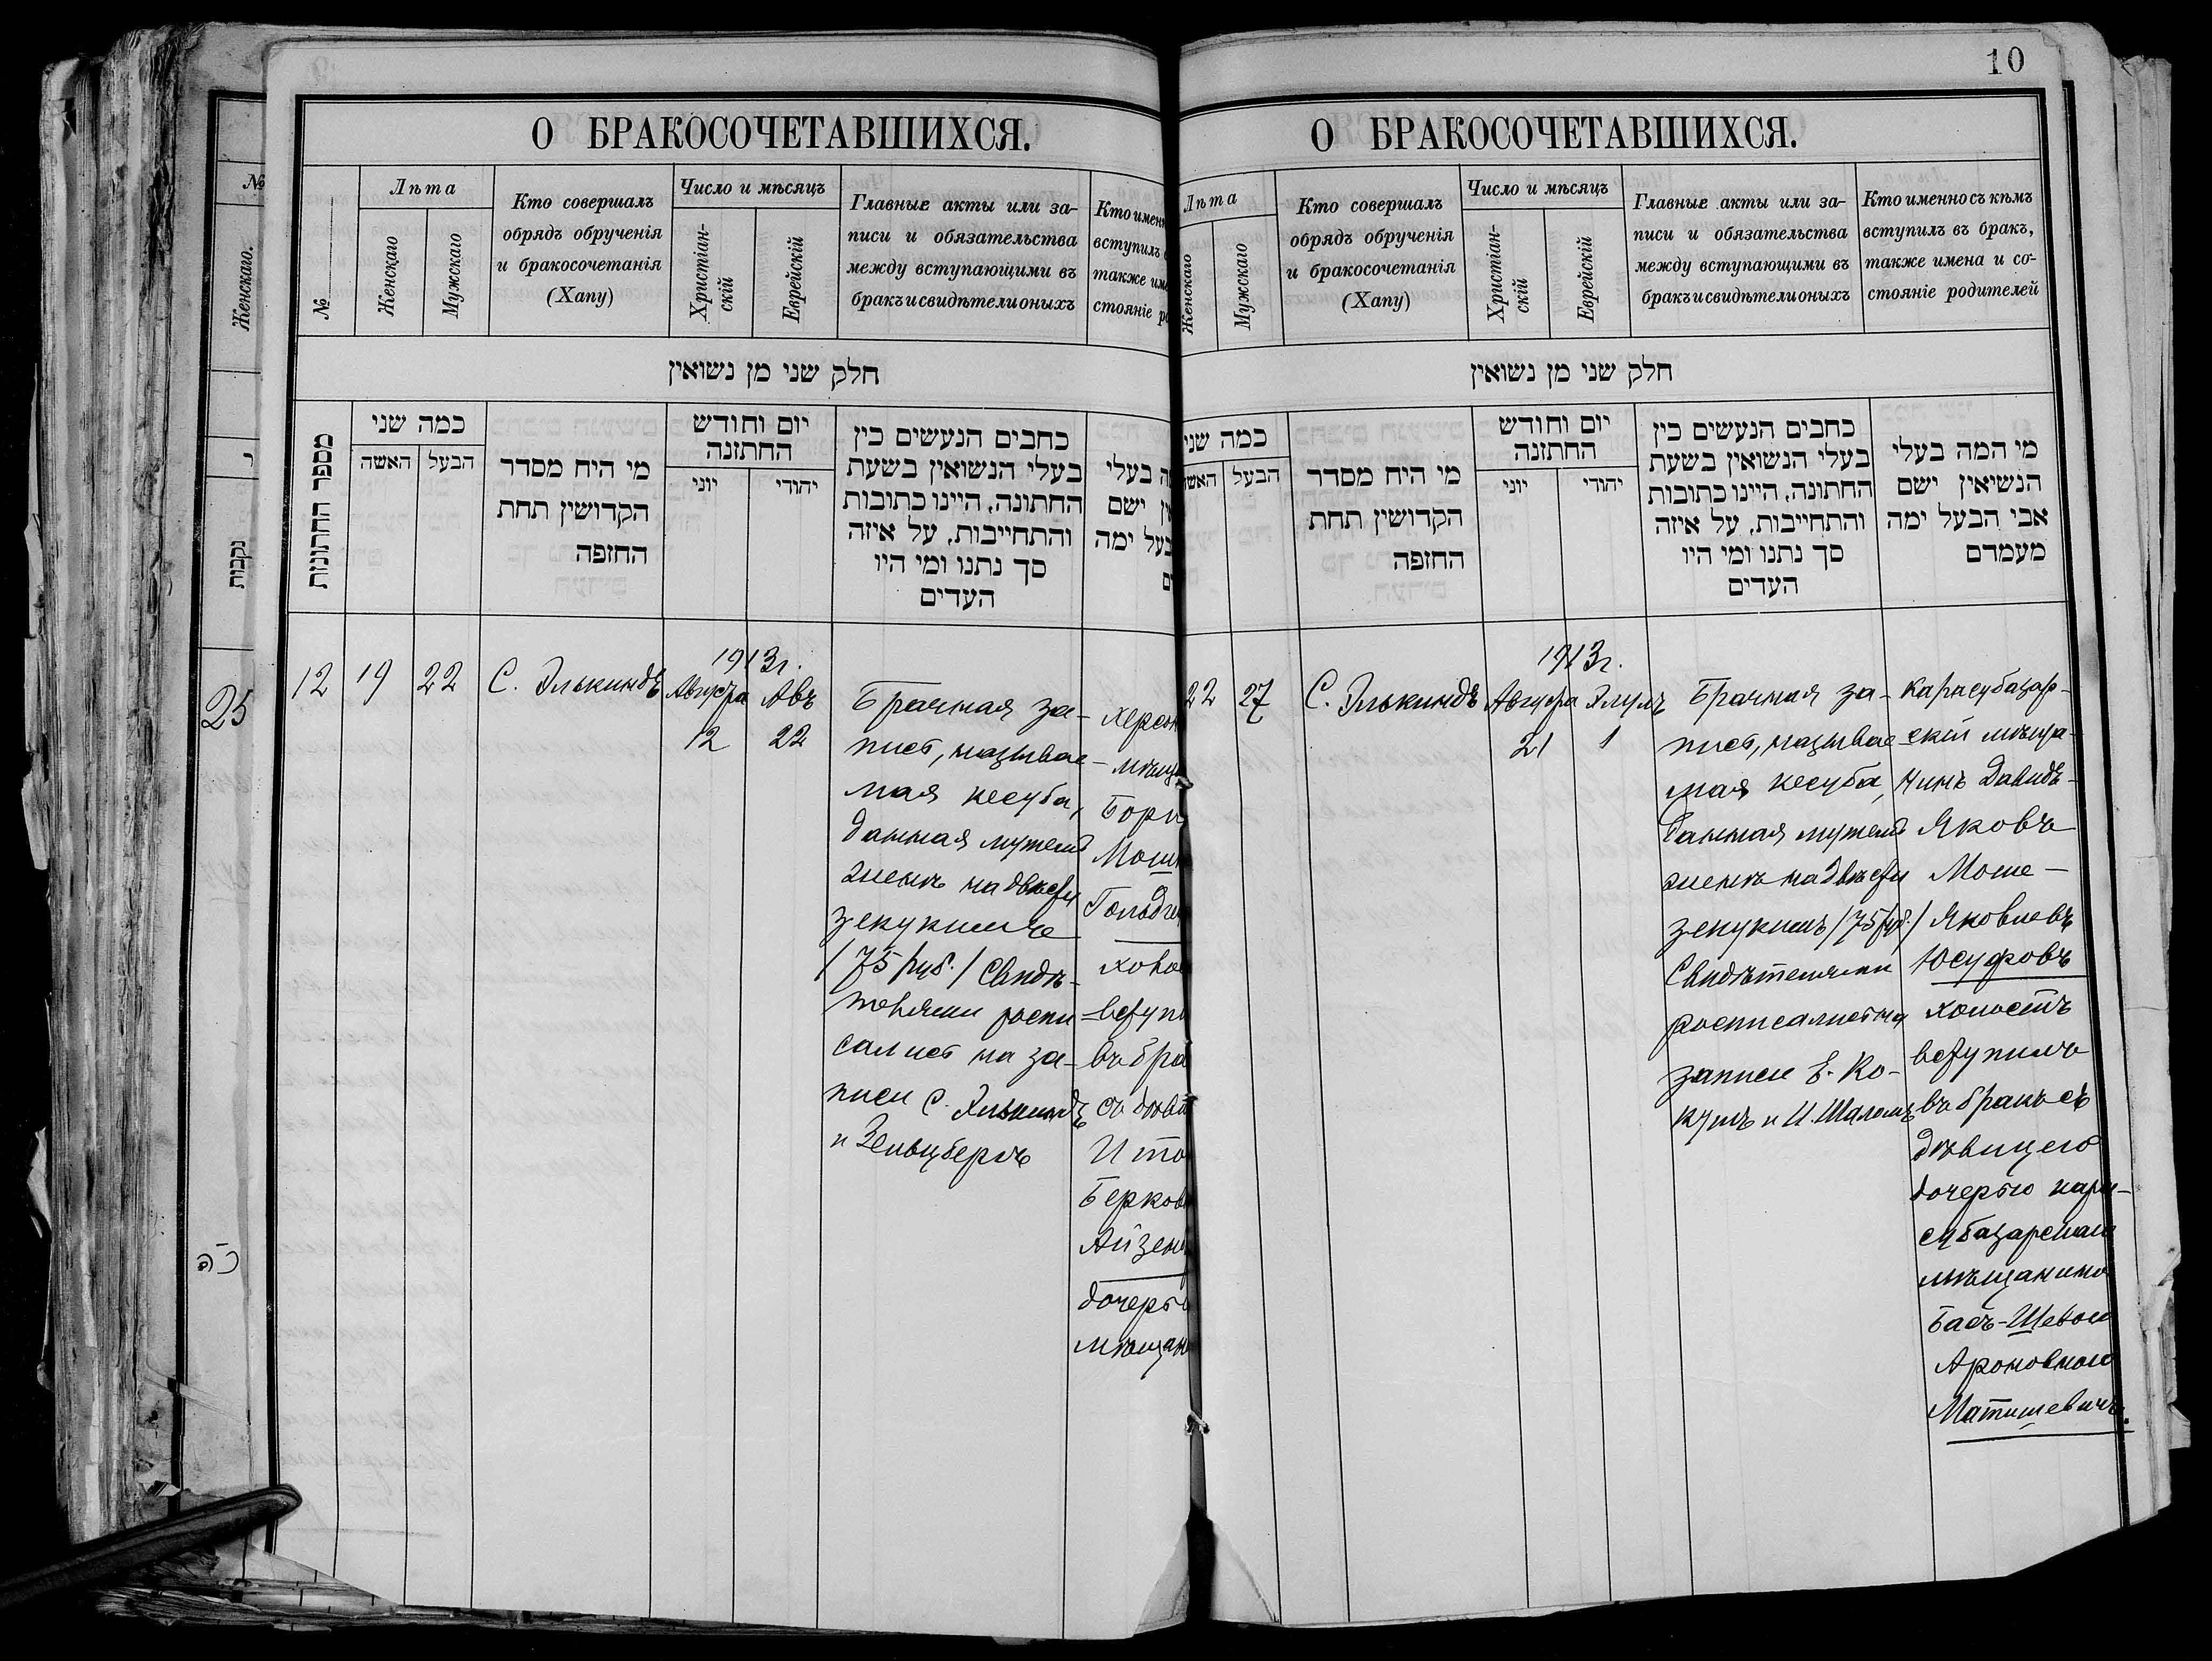 10
№
Женскаго.
נקבות
25
כ"ה
О БРАКОСОЧЕТАВШИХСЯ.
№
Лѣта
Женскаго
Мужскаго
Кто совершалъ
обрядъ обрученія
и бракосочетанія
(Хапу)
Число и мѣсяцъ
Христіан-
скій
Еврейскій
Главные акты или за-
писи и обязательства
между вступающими въ
бракъ и свидѣтели оныхъ
Кто имен
вступилъ
также им
стояніе
חלק שני מן נשואין
מספר החתונות
כמה שני
האשה
הבעל
מי היח מסדר
הקדושין תחת
החזפה
יום וחודש
החתזנה
יוני
יהודי
כחבים הנעשים כין
בעלי הנשואין בשעת
החתונה, היינו כתובות
והתחייבות, על איזה
סך נתנו ומי היו
העדים
בעלי
ישם
בעל ימה
12
19
22
С. Элькиндъ
1913г.
Августа
12
Авъ
22
Брачная за-
пись, называе-
мая кесуба,
данная мужемъ
женѣ на двѣсти
зекукимъ
/75 руб./ Свидѣ-
телями роспи-
сались на за-
писи С. Элькиндъ
и Зельцберъ
мѣща
Бори
Мош
Гольд
всту
въ бра
съ дѣви
Ито
Берков
Айзен
дочерь
мѣщан
О БРАКОСОЧЕТАВШИХСЯ.
Лѣта
Женскаго
Мужскаго
Кто совершалъ
обрядъ обрученія
и бракосочетанія
(Хапу)
Число и мѣсяцъ
Христіан-
скій
Еврейскій
Главные акты или за-
писи и обязательства
между вступающими въ
бракъ и свидѣтели оныхъ
Кто именно съ кѣмъ
вступилъ въ бракъ,
также имена и со-
стояніе родителей
חלק שני מן נשואין
כמה שני
הבעל
מי היח מסדר
הקדושין תחת
החזפה
יום וחודש
החתזנה
יוני
יהודי
כחבים הנעשים כין
בעלי הנשואין בשעת
החתונה, היינו כתובות
והתחייבות, על איזה
סך נתנו ומי היו
העדים
מי המה בעלי
הנשיאין ישם
אבי הבעל ימה
מעמדם
22
27
С. Элькиндъ
1913г.
Августа
21
Элулъ
1
Брачная за-
пись, называе-
мая кесуба,
данная мужемъ
женѣ на двѣсти
зекукимъ /75 руб./
Свидѣтелями
росписались на
записи Е. Ко-
кумъ и И. Шаломъ
Карасубазар-
скій мѣща-
нинъ Давидъ-
Яковъ
Моше-
Яковлевъ
Юсуфовъ
холостъ
вступилъ
въ бракъ съ
дѣвицею
дочерью кара-
субазарскаго
мѣщанина
Басъ-Шевою
Ароновною
Матишевичъ.